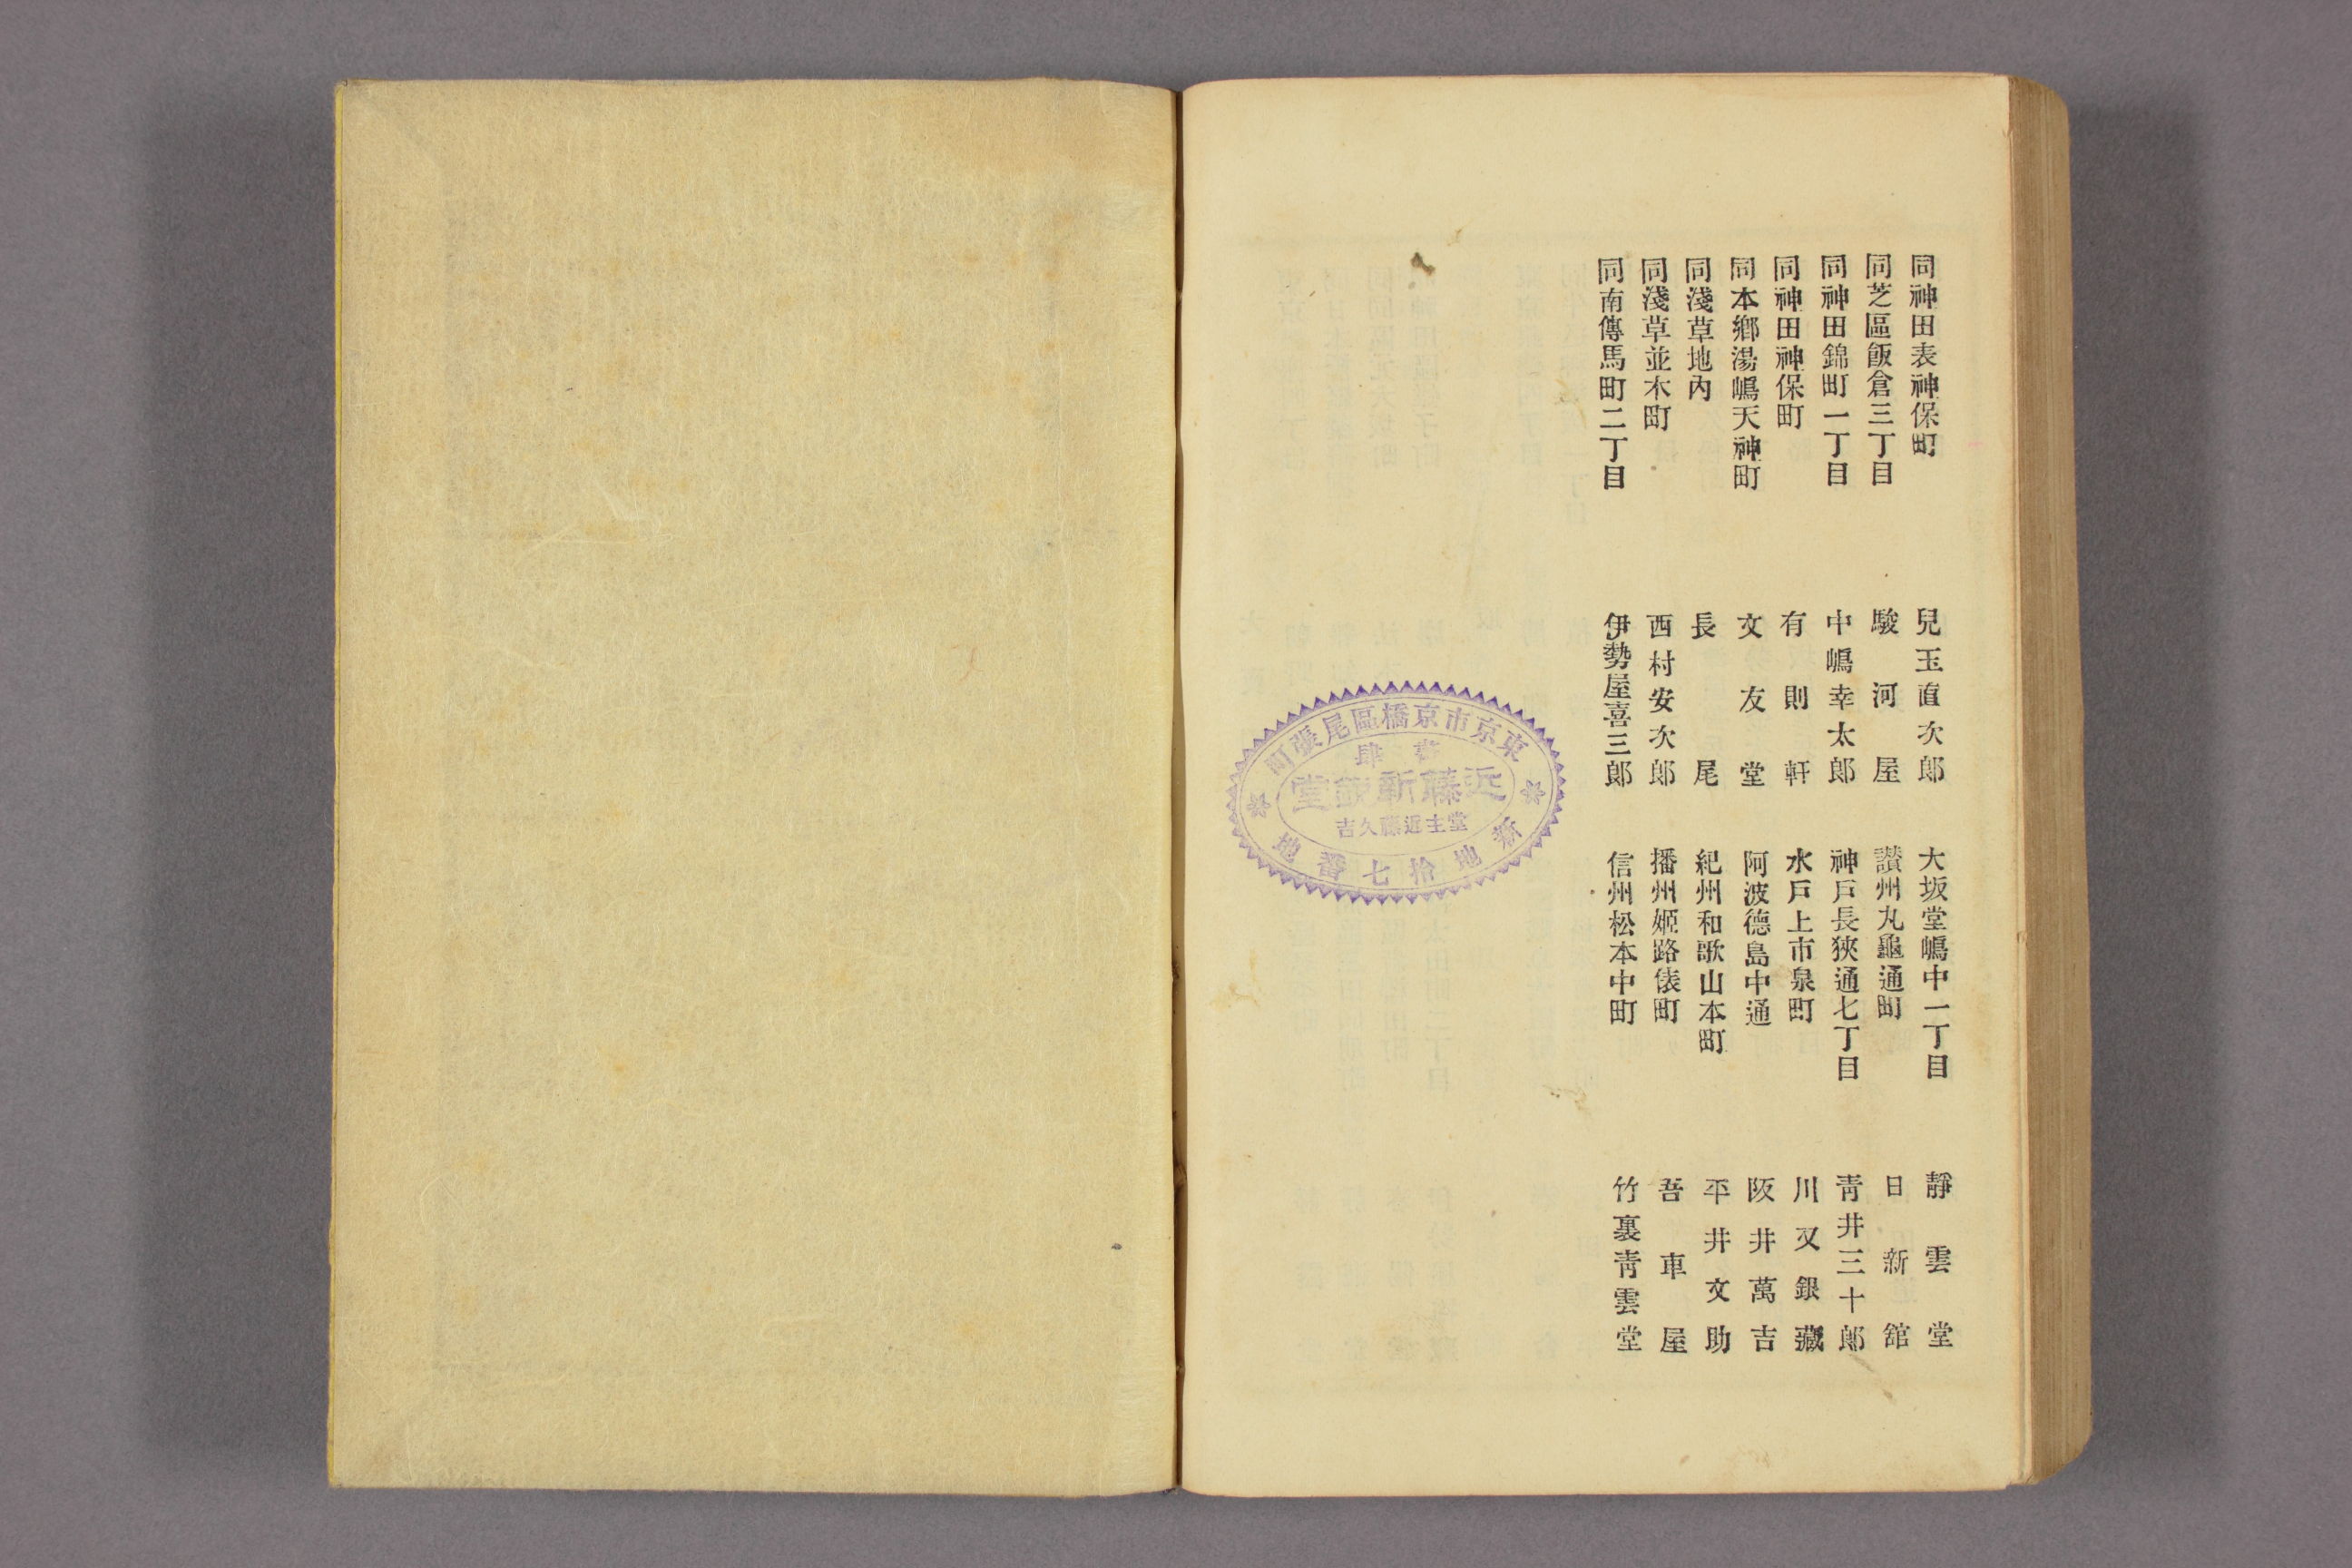 同神田表神保町
兒玉直次郎
同芝區飯倉三丁目
駿河屋
同神田錦町一丁目
中嶋幸太郎
同神田神保町
有則軒
同本鄕湯嶋天神町
文友堂
同淺草地內
長尾
同淺草並木町
西村安次郎
同南傳馬町二丁目
伊勢屋喜三郎
大坂堂嶋中一丁目
靜雲堂
讃州丸龜通町
日新舘
神戶長狹通七丁目
靑井三十郎
水戶上市泉町
川又銀藏
阿波德島中通
阪井萬吉
紀州和歌山本町
平井文助
播州姬路俵町
吾車屋
信州松本中町
竹裏靑雲堂
東京市京橋區尾張町
新地拾七番地
書肆
近藤新鼓堂
堂主近藤久吉